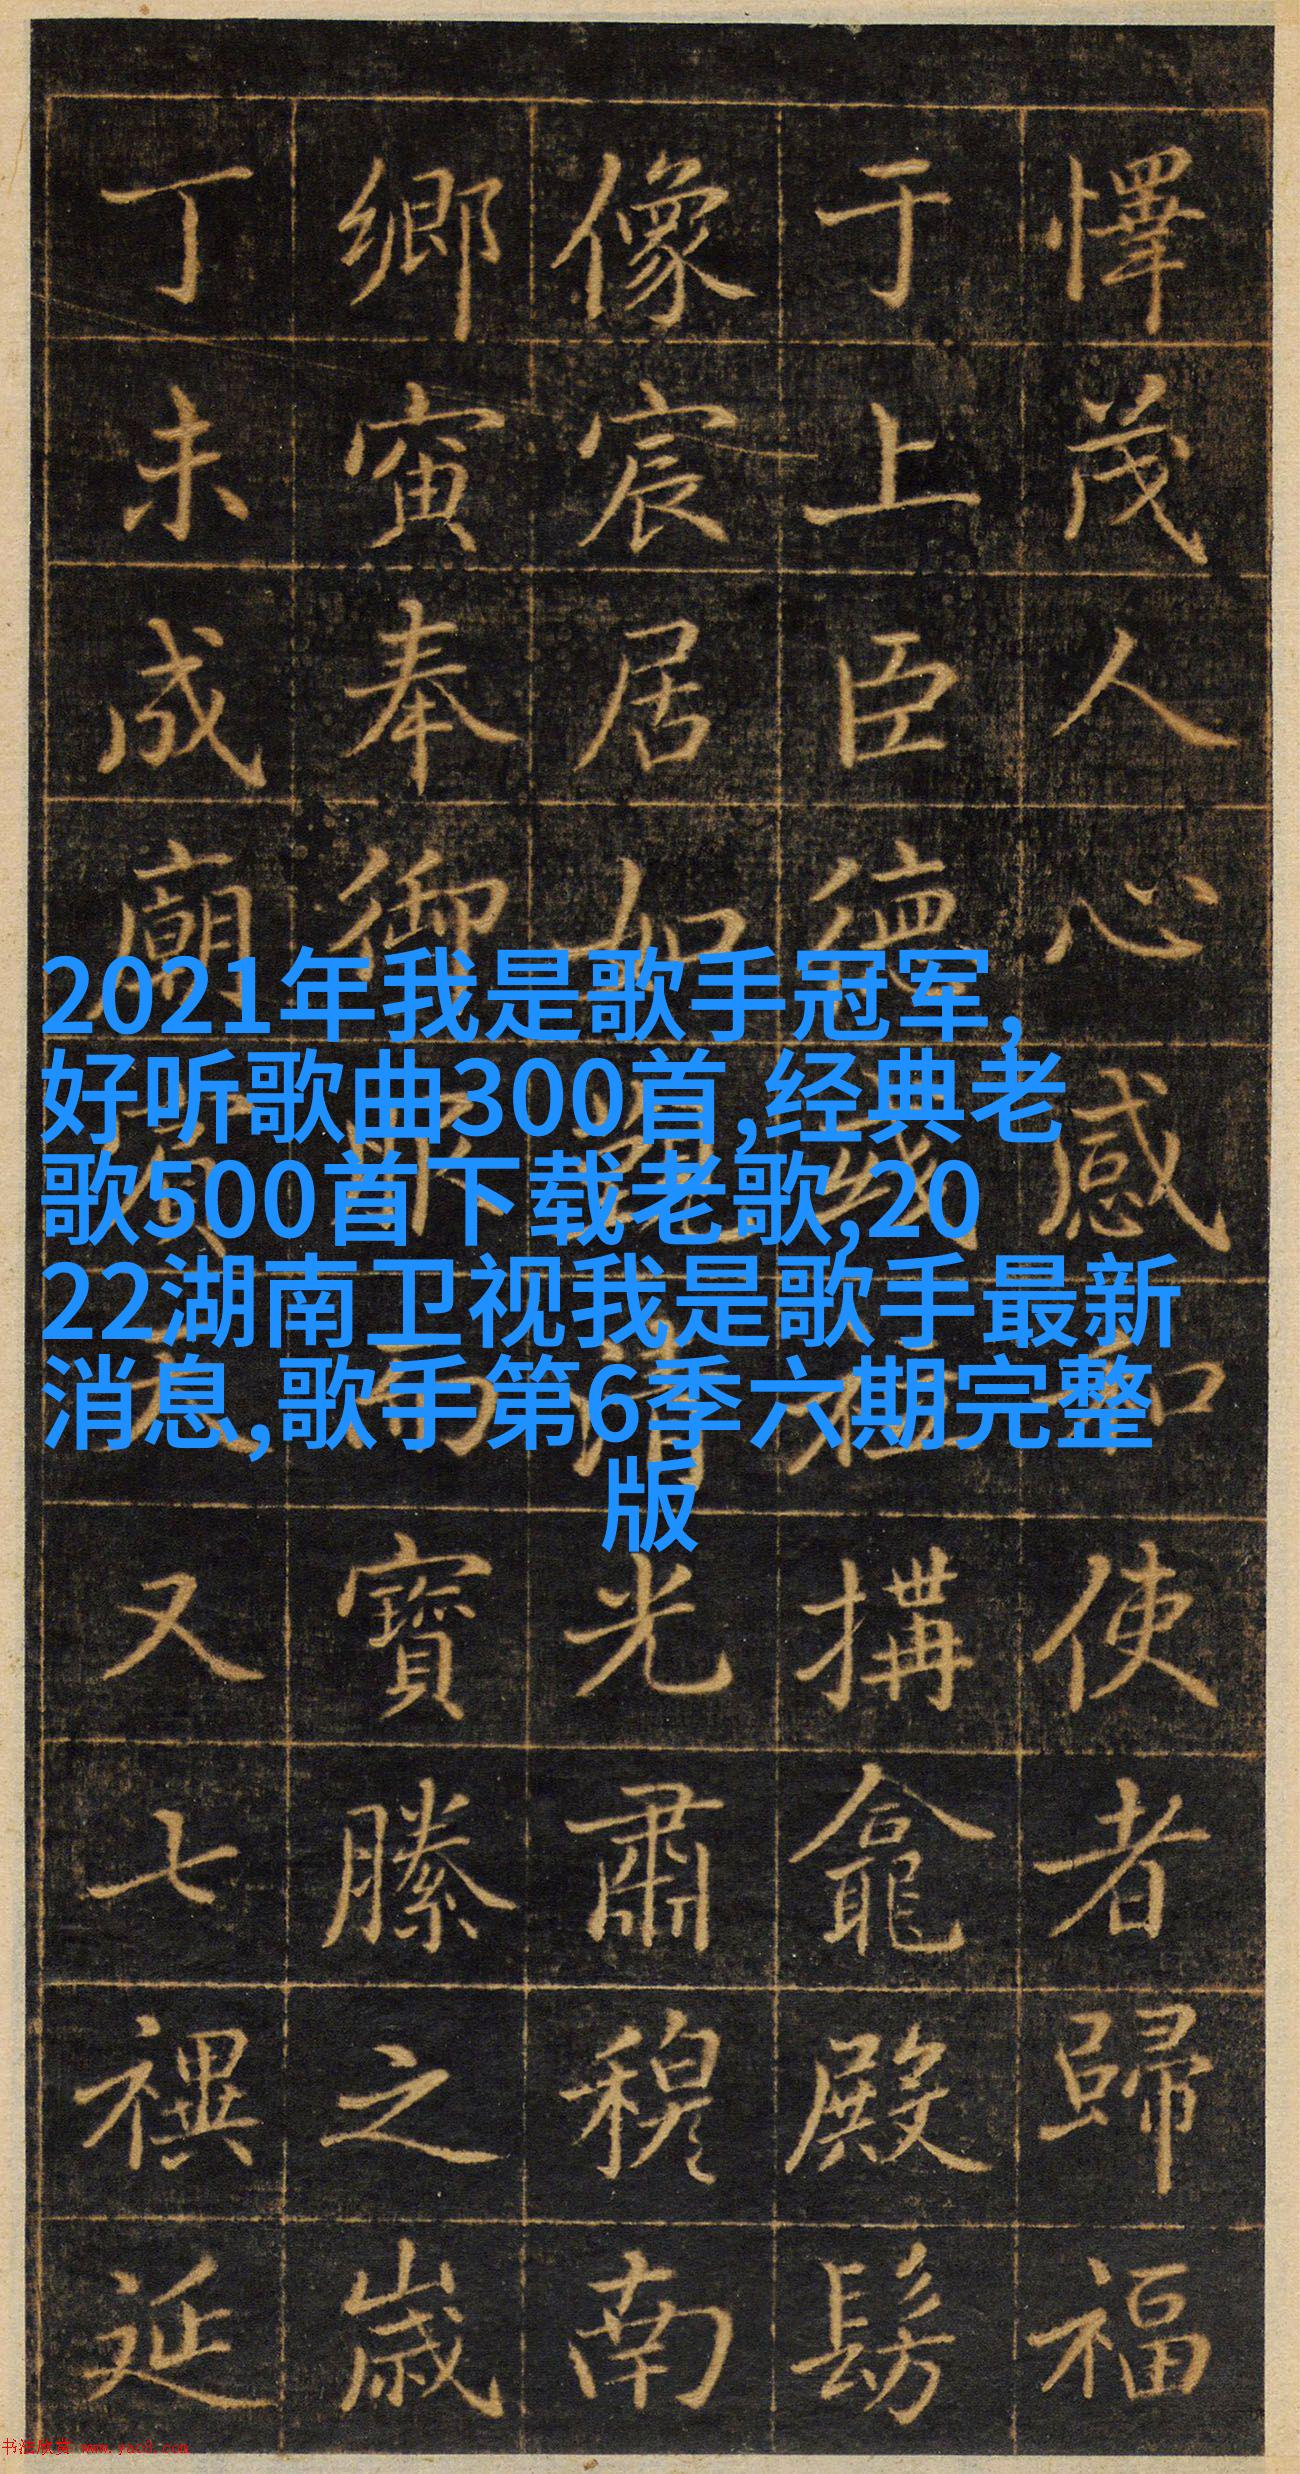 懌茂人心感和使者歸福
于上臣德搆龕殿髣
像宸居如清光肅穆南
鄉寅奉御寶縢之歲
丁未成廟又七禩延
2021年我是歌手冠军,
好听歌曲300首,经典老
歌500首下载老歌,20
22湖南卫视我是歌手最新
消息,歌手第6季六期完整
版
书法欣赏 www.yac8.com